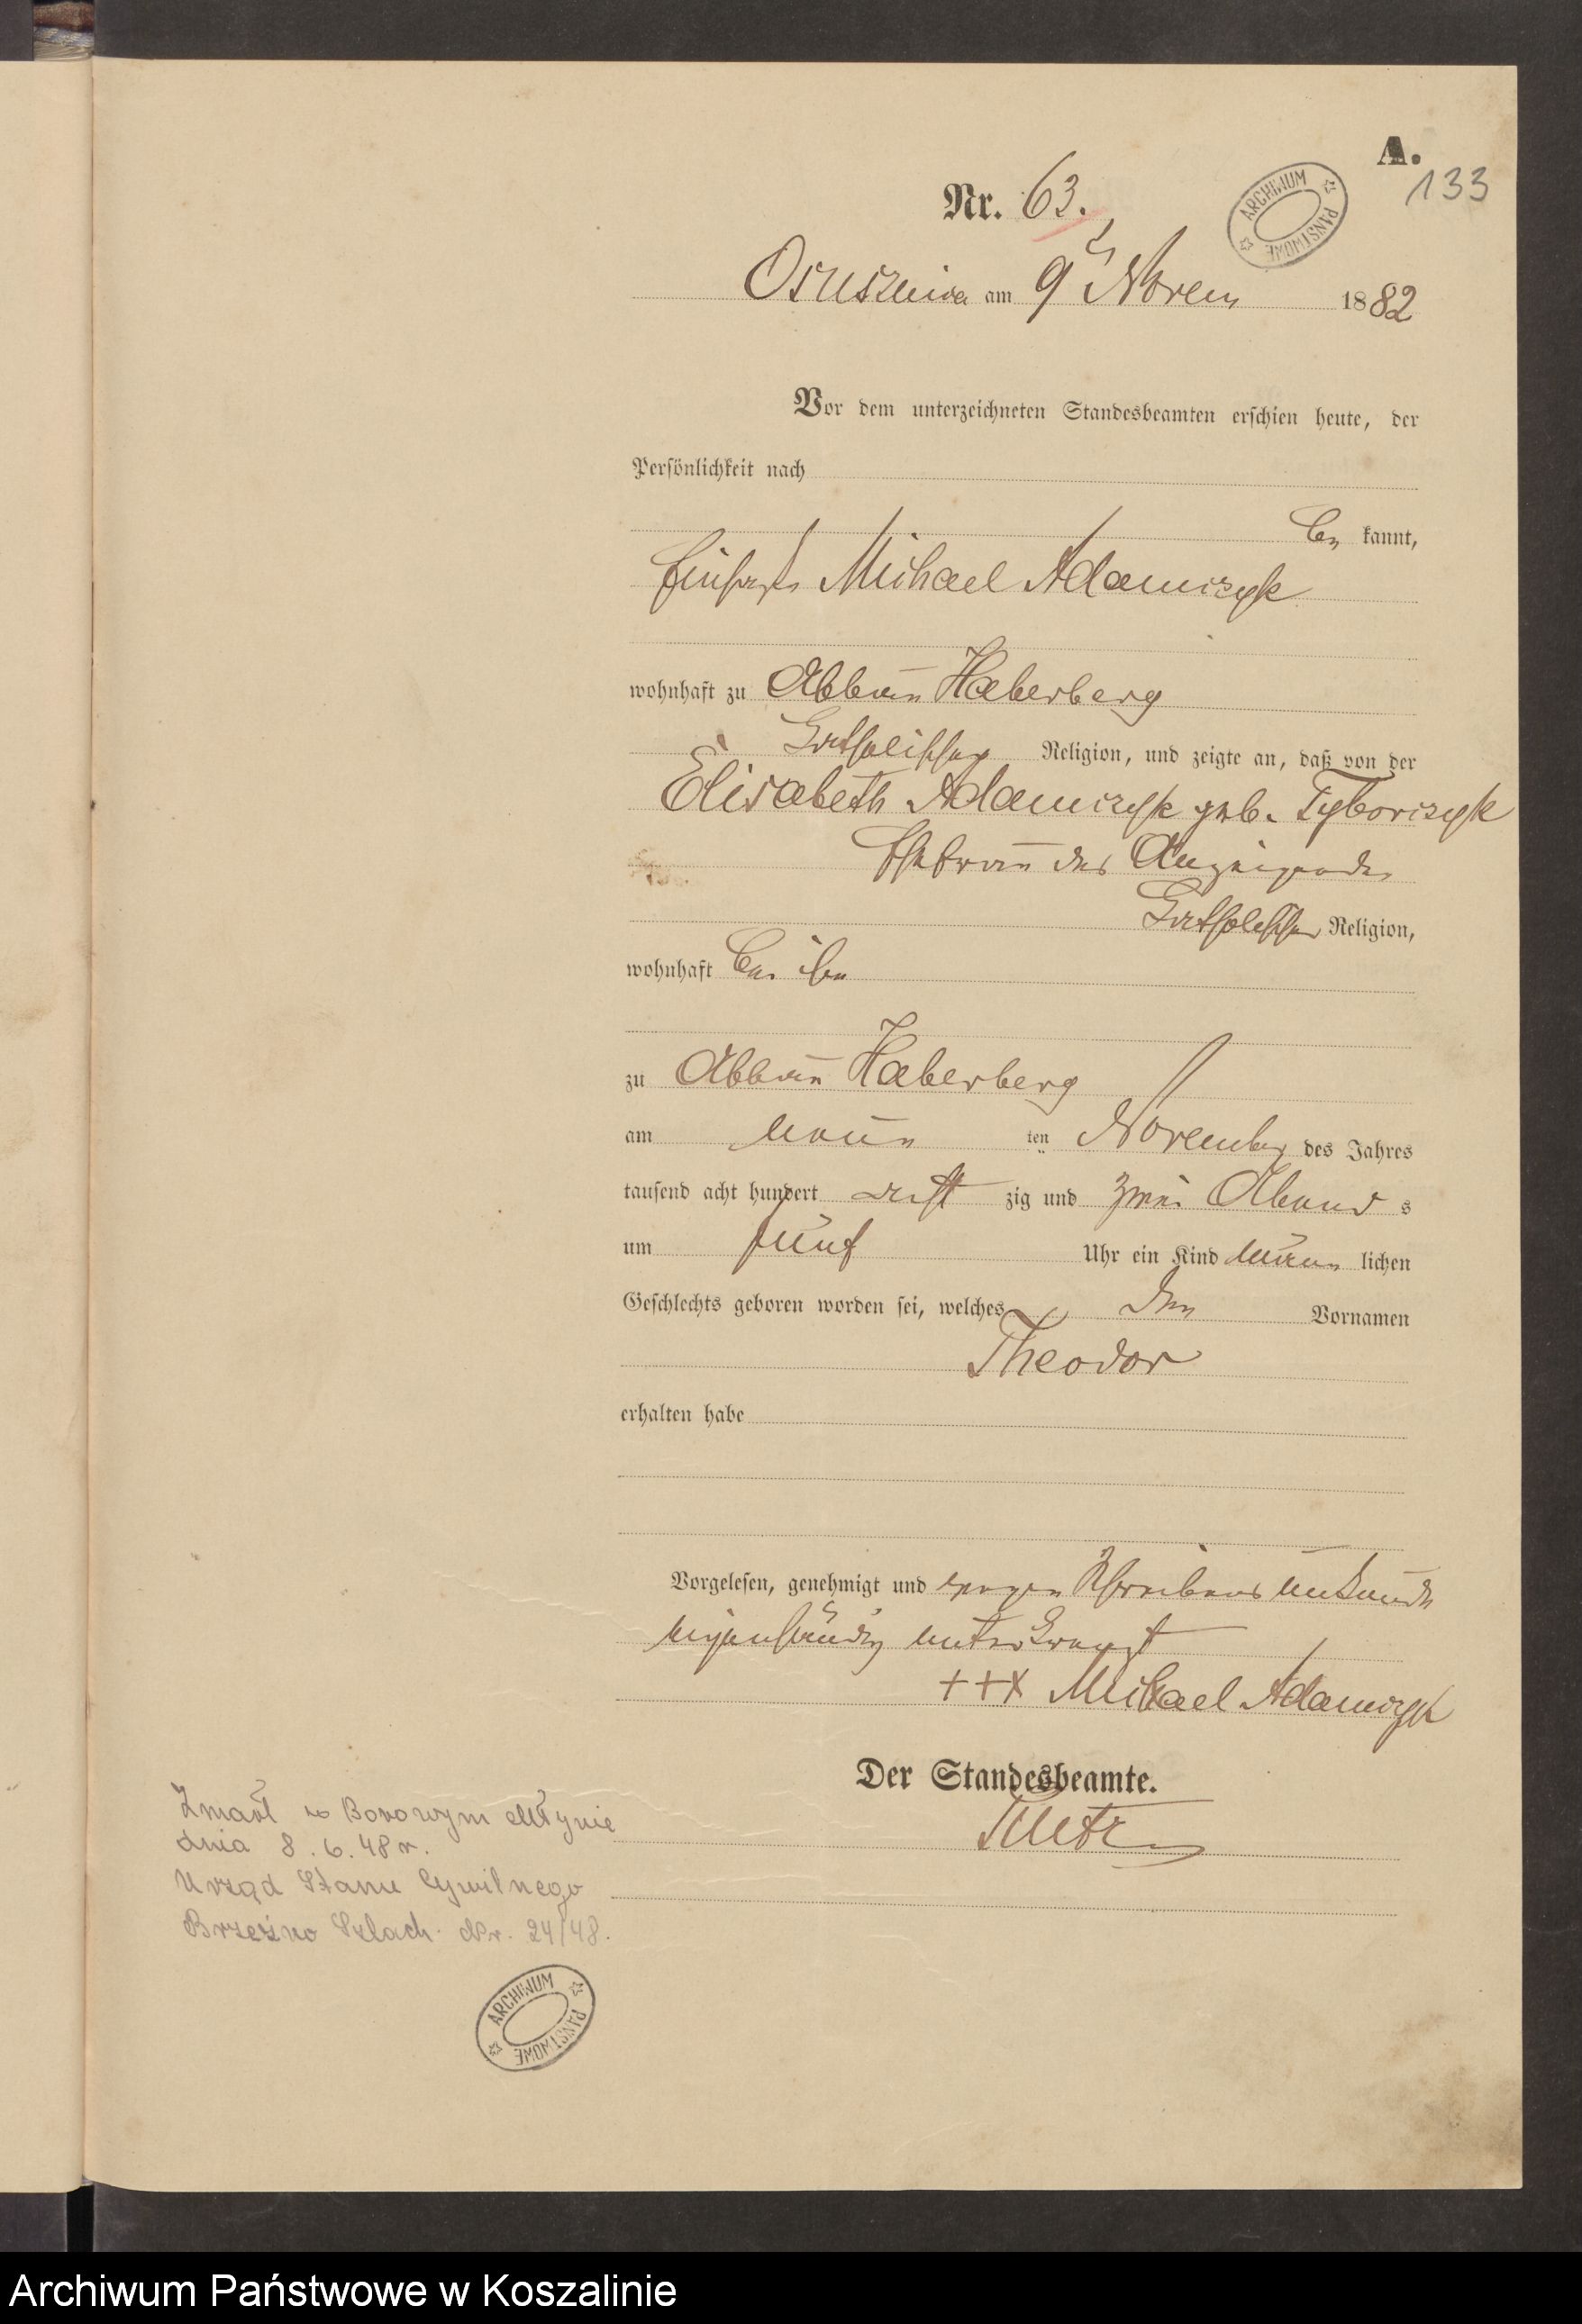 A.
133
Nr. 63.
ARCHIWUM PAŃSTWOWE
Osuszniza am 9 Novem 1882
Vor dem unterzeichneten Standesbeamten erschien heute, der
Persönlichkeit nach
be kannt,
Michael Adamczyk
wohnhaft zu Abbau Haberberg
katholischer Religion, und zeigte an, daß von der
Elisabeth Adamczyk geb. Tyborczyk
Ehefrau des Anzeigenden
katholischer Religion,
wohnhaft bei ihm
zu Abbau Haberberg
am neun ten November des Jahres
tausend acht hundert acht zig und zwei Abend s
um fünf Uhr ein Kind männ lichen
Geschlechts geboren worden sei, welches den Vornamen
Theodor
erhalten habe
Vorgelesen, genehmigt und wegen Schreibens unkunde
eigenhändig unterkreuzt
+++ Michael Adamczyk
Der Standesbeamte.
Zmarł w Borowym Młynie
dnia 8.6.48 r.
Urząd Stanu Cywilnego
Brzeźno Szlach. Nr. 24/48.
ARCHIWUM PAŃSTWOWE
Archiwum Państwowe w Koszalinie